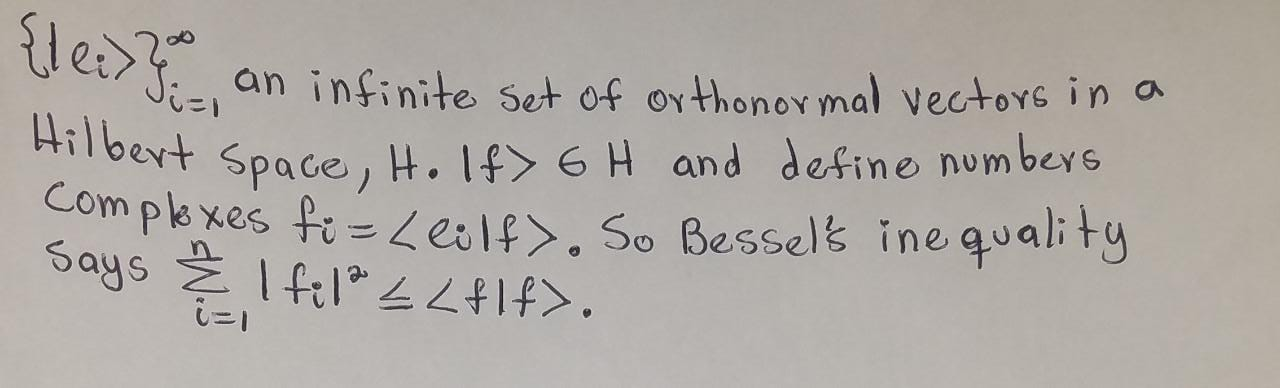 {|ei>}∞i=1 an infinite set of orthonormal vectors in a
Hilbert Space, H. |f> ∈ H and define numbers
Complexes fi = <ei|f>. So Bessel's inequality
Says n∑i=1 |fi|² ≤ <f|f>.